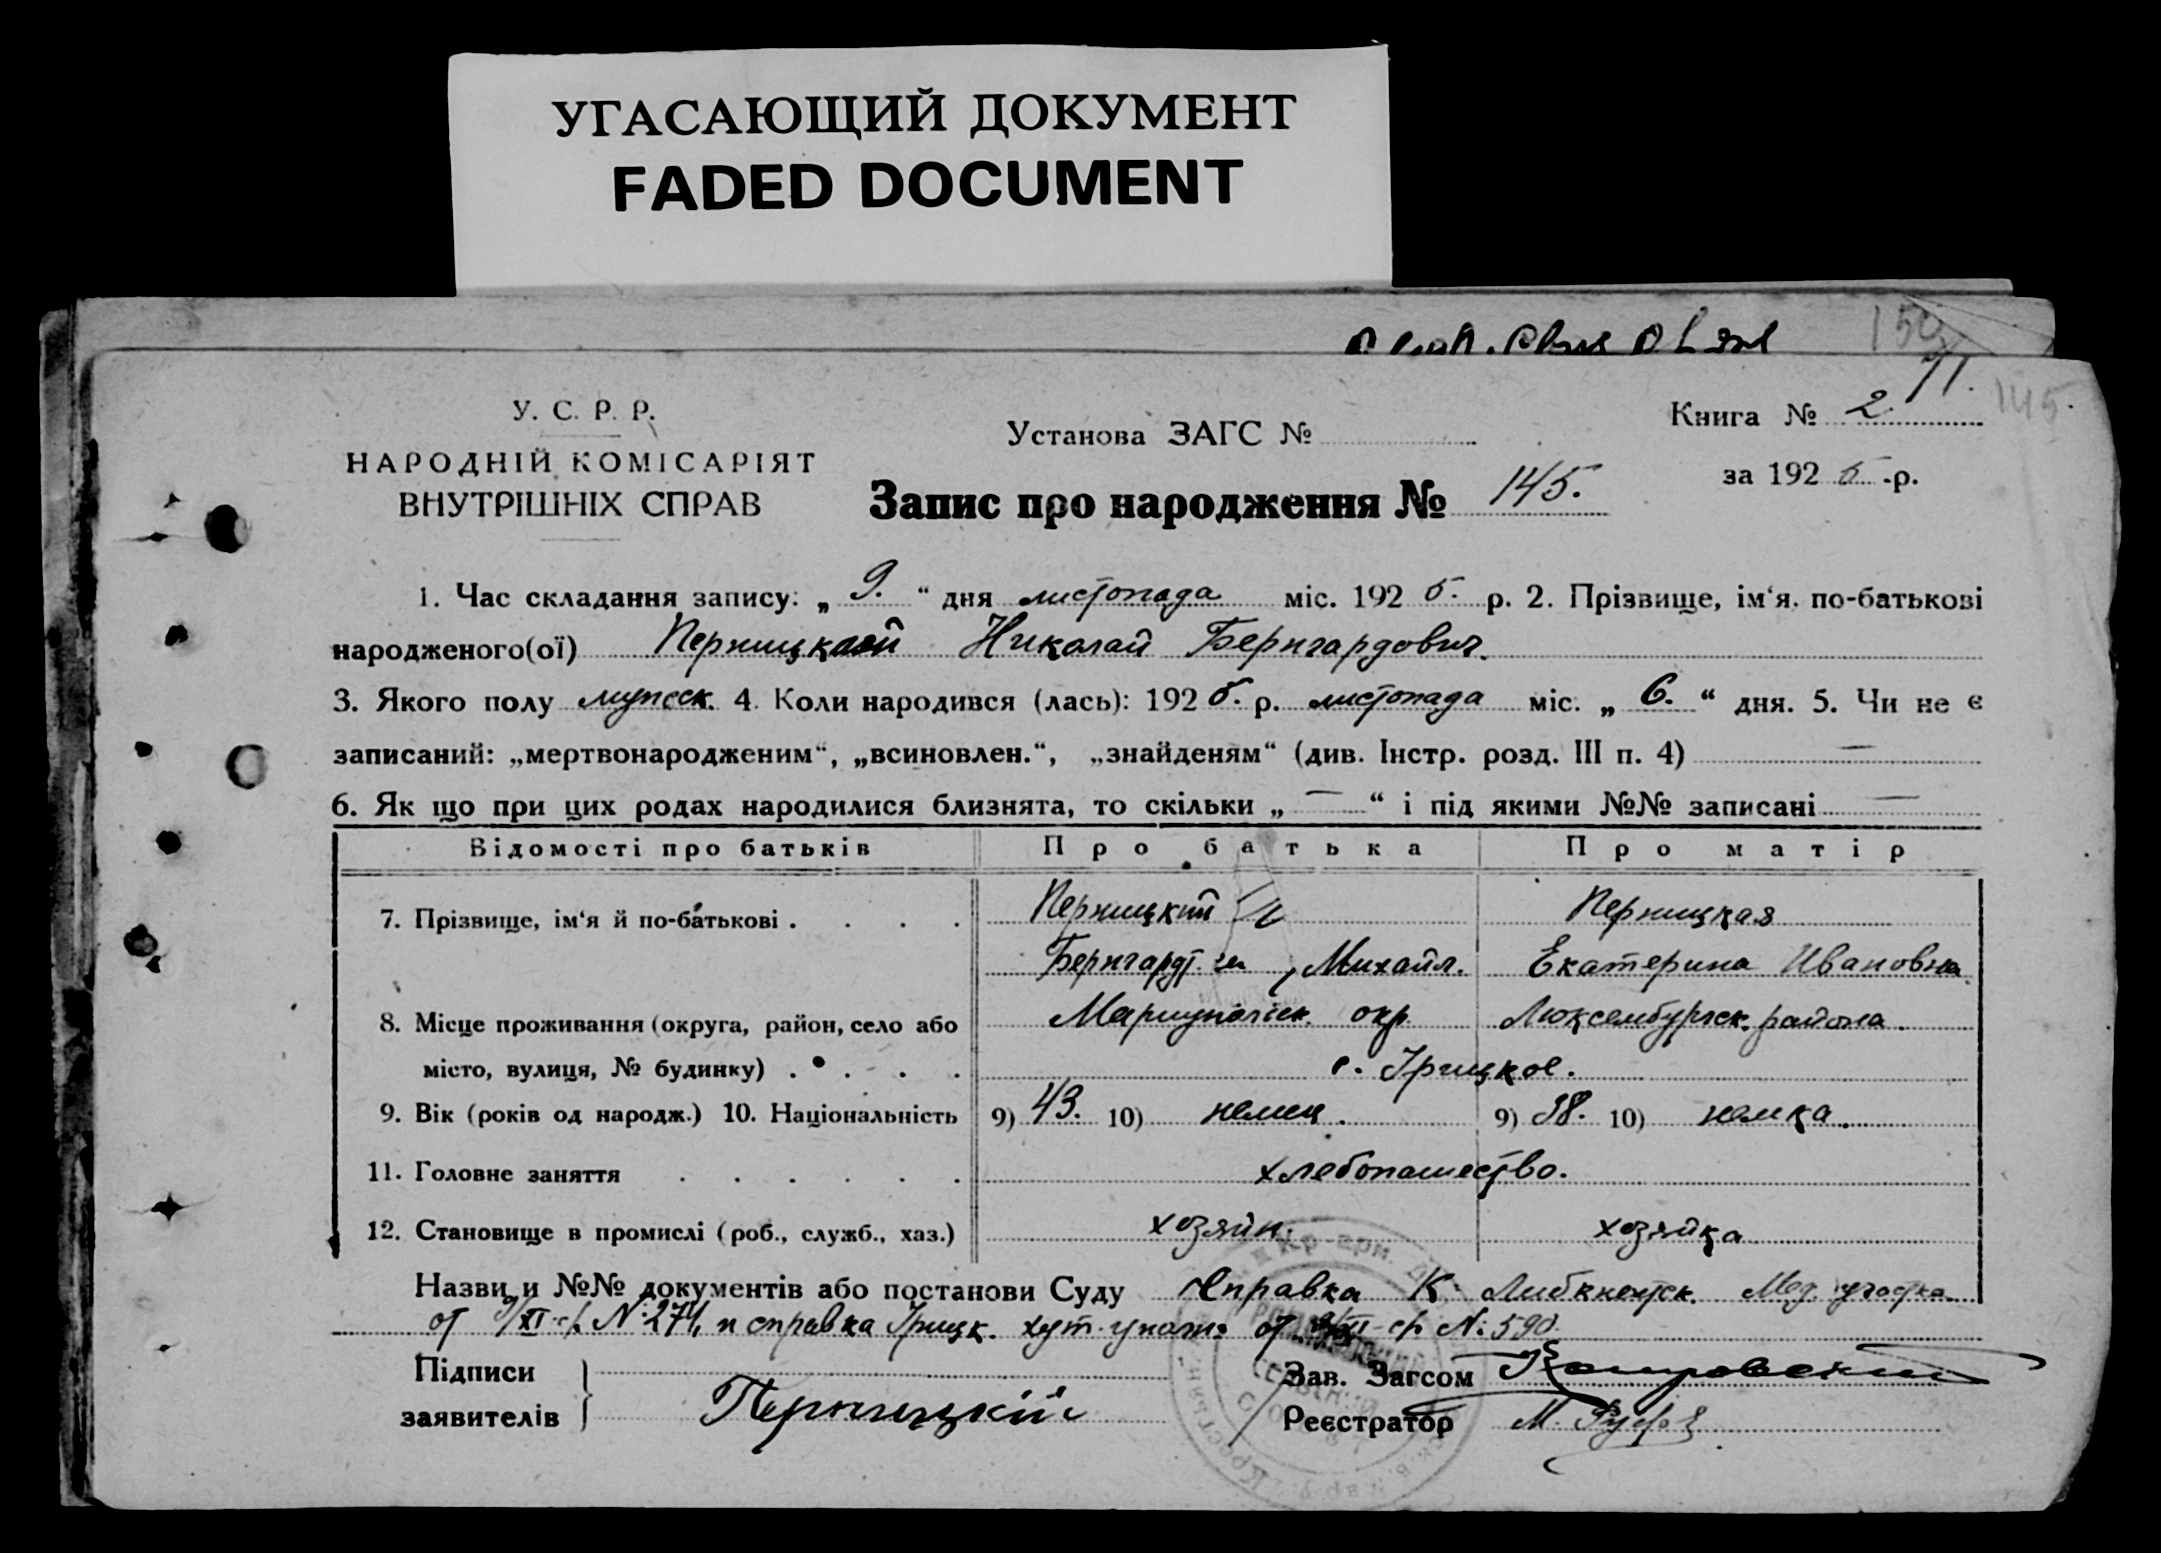 УГАСАЮЩИЙ ДОКУМЕНТ
FADED DOCUMENT
150
71.
145.
У. С. Р. Р.
НАРОДНІЙ КОМІСАРІЯТ
ВНУТРІШНІХ СПРАВ
Установа ЗАГС №
Книга № 2
за 1925 .р.
Запис про народження № 145.
1. Час складання запису: „ 9. “ дня листопада міс. 1925. р. 2. Прізвище, ім‘я. по-батькові
народженого(ої) Перницкий Николай Бернгардович.
3. Якого полу мужеск. 4. Коли народився (лась): 1925. р. листопада міс. „ 6. “ дня. 5. Чи не є
записаний: „мертвонародженим“, „всиновлен.“, „знайденям“ (див. Інстр. розд. III п. 4) —
6. Як що при цих родах народилися близнята, то скільки „ — “ і під якими №№ записані —
Відомості про батьків Про батька Про матір
7. Прізвище, ім‘я й по-батькові . . . . Перницкий Перницкая
Бернгардт Михайл. Екатерина Ивановна
8. Місце проживання (округа, район, село або Мариупольск. окр. Люксембургск. района.
місто, вулиця, № будинку) . . . . с. Грицкое.
9. Вік (років од народж.) 10. Національність 9) 43. 10) немец. 9) 38. 10) немка.
11. Головне заняття . . . . . . хлебопашество.
12. Становище в промислі (роб., служб., хаз.) хозяин. хозяйка
Назви и №№ документів або постанови Суду Справка К. Либкнехтск. Мед. участка
от 9/XI-с/г. №: 274, и справка Грицк. хут. уполн. от /XI-с/г №: 590.
Підписи
заявителів
Перницкий
Зав. Загсом
Реєстратор М.